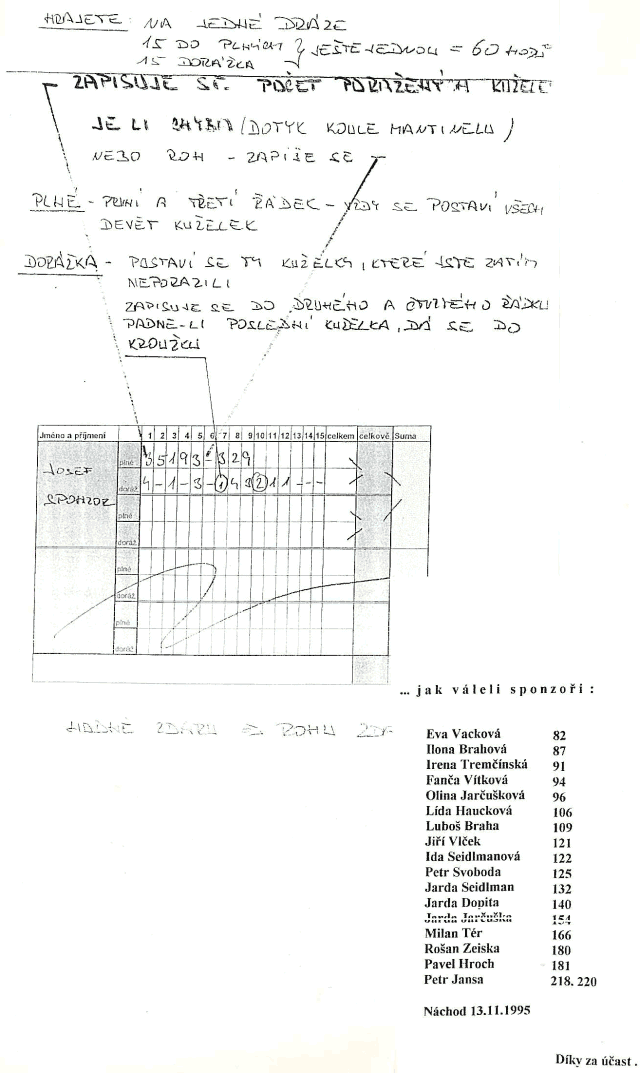 HRAJETE: NA JEDNÉ DRÁZE
15 DO PLNÝCH } JEŠTĚ JEDNOU = 60 HODŮ
15 DORÁŽKA
ZAPISUJE SE POČET PORAŽENÝCH KUŽELE
JE LI CHYBA (DOTYK KOULE MANTINELU)
NEBO ROH - ZAPÍŠE SE -
PLNÉ - PRVNÍ A TŘETÍ ŘÁDEK - VŽDY SE POSTAVÍ VŠECH
DEVĚT KUŽELEK
DORÁŽKA - POSTAVÍ SE TY KUŽELKY, KTERÉ JSTE ZATÍM
NEPORAZILI
ZAPISUJE SE DO DRUHÉHO A ČTVRTÉHO ŘÁDKU
PADNE-LI POSLEDNÍ KUŽELKA, DÁ SE DO
KROUŽKU
Jméno a příjmení 1 2 3 4 5 6 7 8 9 10 11 12 13 14 15 celkem celkově Suma
JOSEF plné 3 5 1 9 3 - 3 2 9
SPONZOR doráž. 4 - 1 - 3 - 1 4 3 2 1 1 - - -
plné
doráž.
plné
doráž.
plné
doráž.
... jak váleli sponzoři :
HODNĚ ZDARU
Eva Vacková 82
Ilona Brahová 87
Irena Tremčínská 91
Fanča Vítková 94
Olina Jarčušková 96
Lída Haucková 106
Luboš Braha 109
Jiří Vlček 121
Ida Seidlmanová 122
Petr Svoboda 125
Jarda Seidlman 132
Jarda Dopita 140
Jarda Jarčuška 154
Milan Tér 166
Rošan Zeiska 180
Pavel Hroch 181
Petr Jansa 218. 220
Náchod 13.11.1995
Díky za účast .